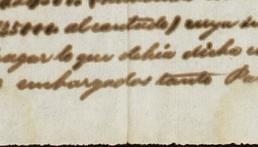 25000 al contado) cuya in
pagar lo que debia dicho c
embargados tanto Pa